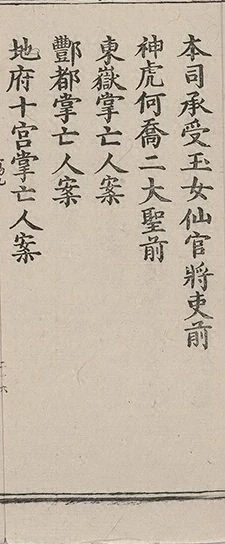 本司承受玉女仙官將吏前
神虎何喬二大聖前
東嶽掌亡人案
酆都掌亡人案
地府十宮掌亡人案